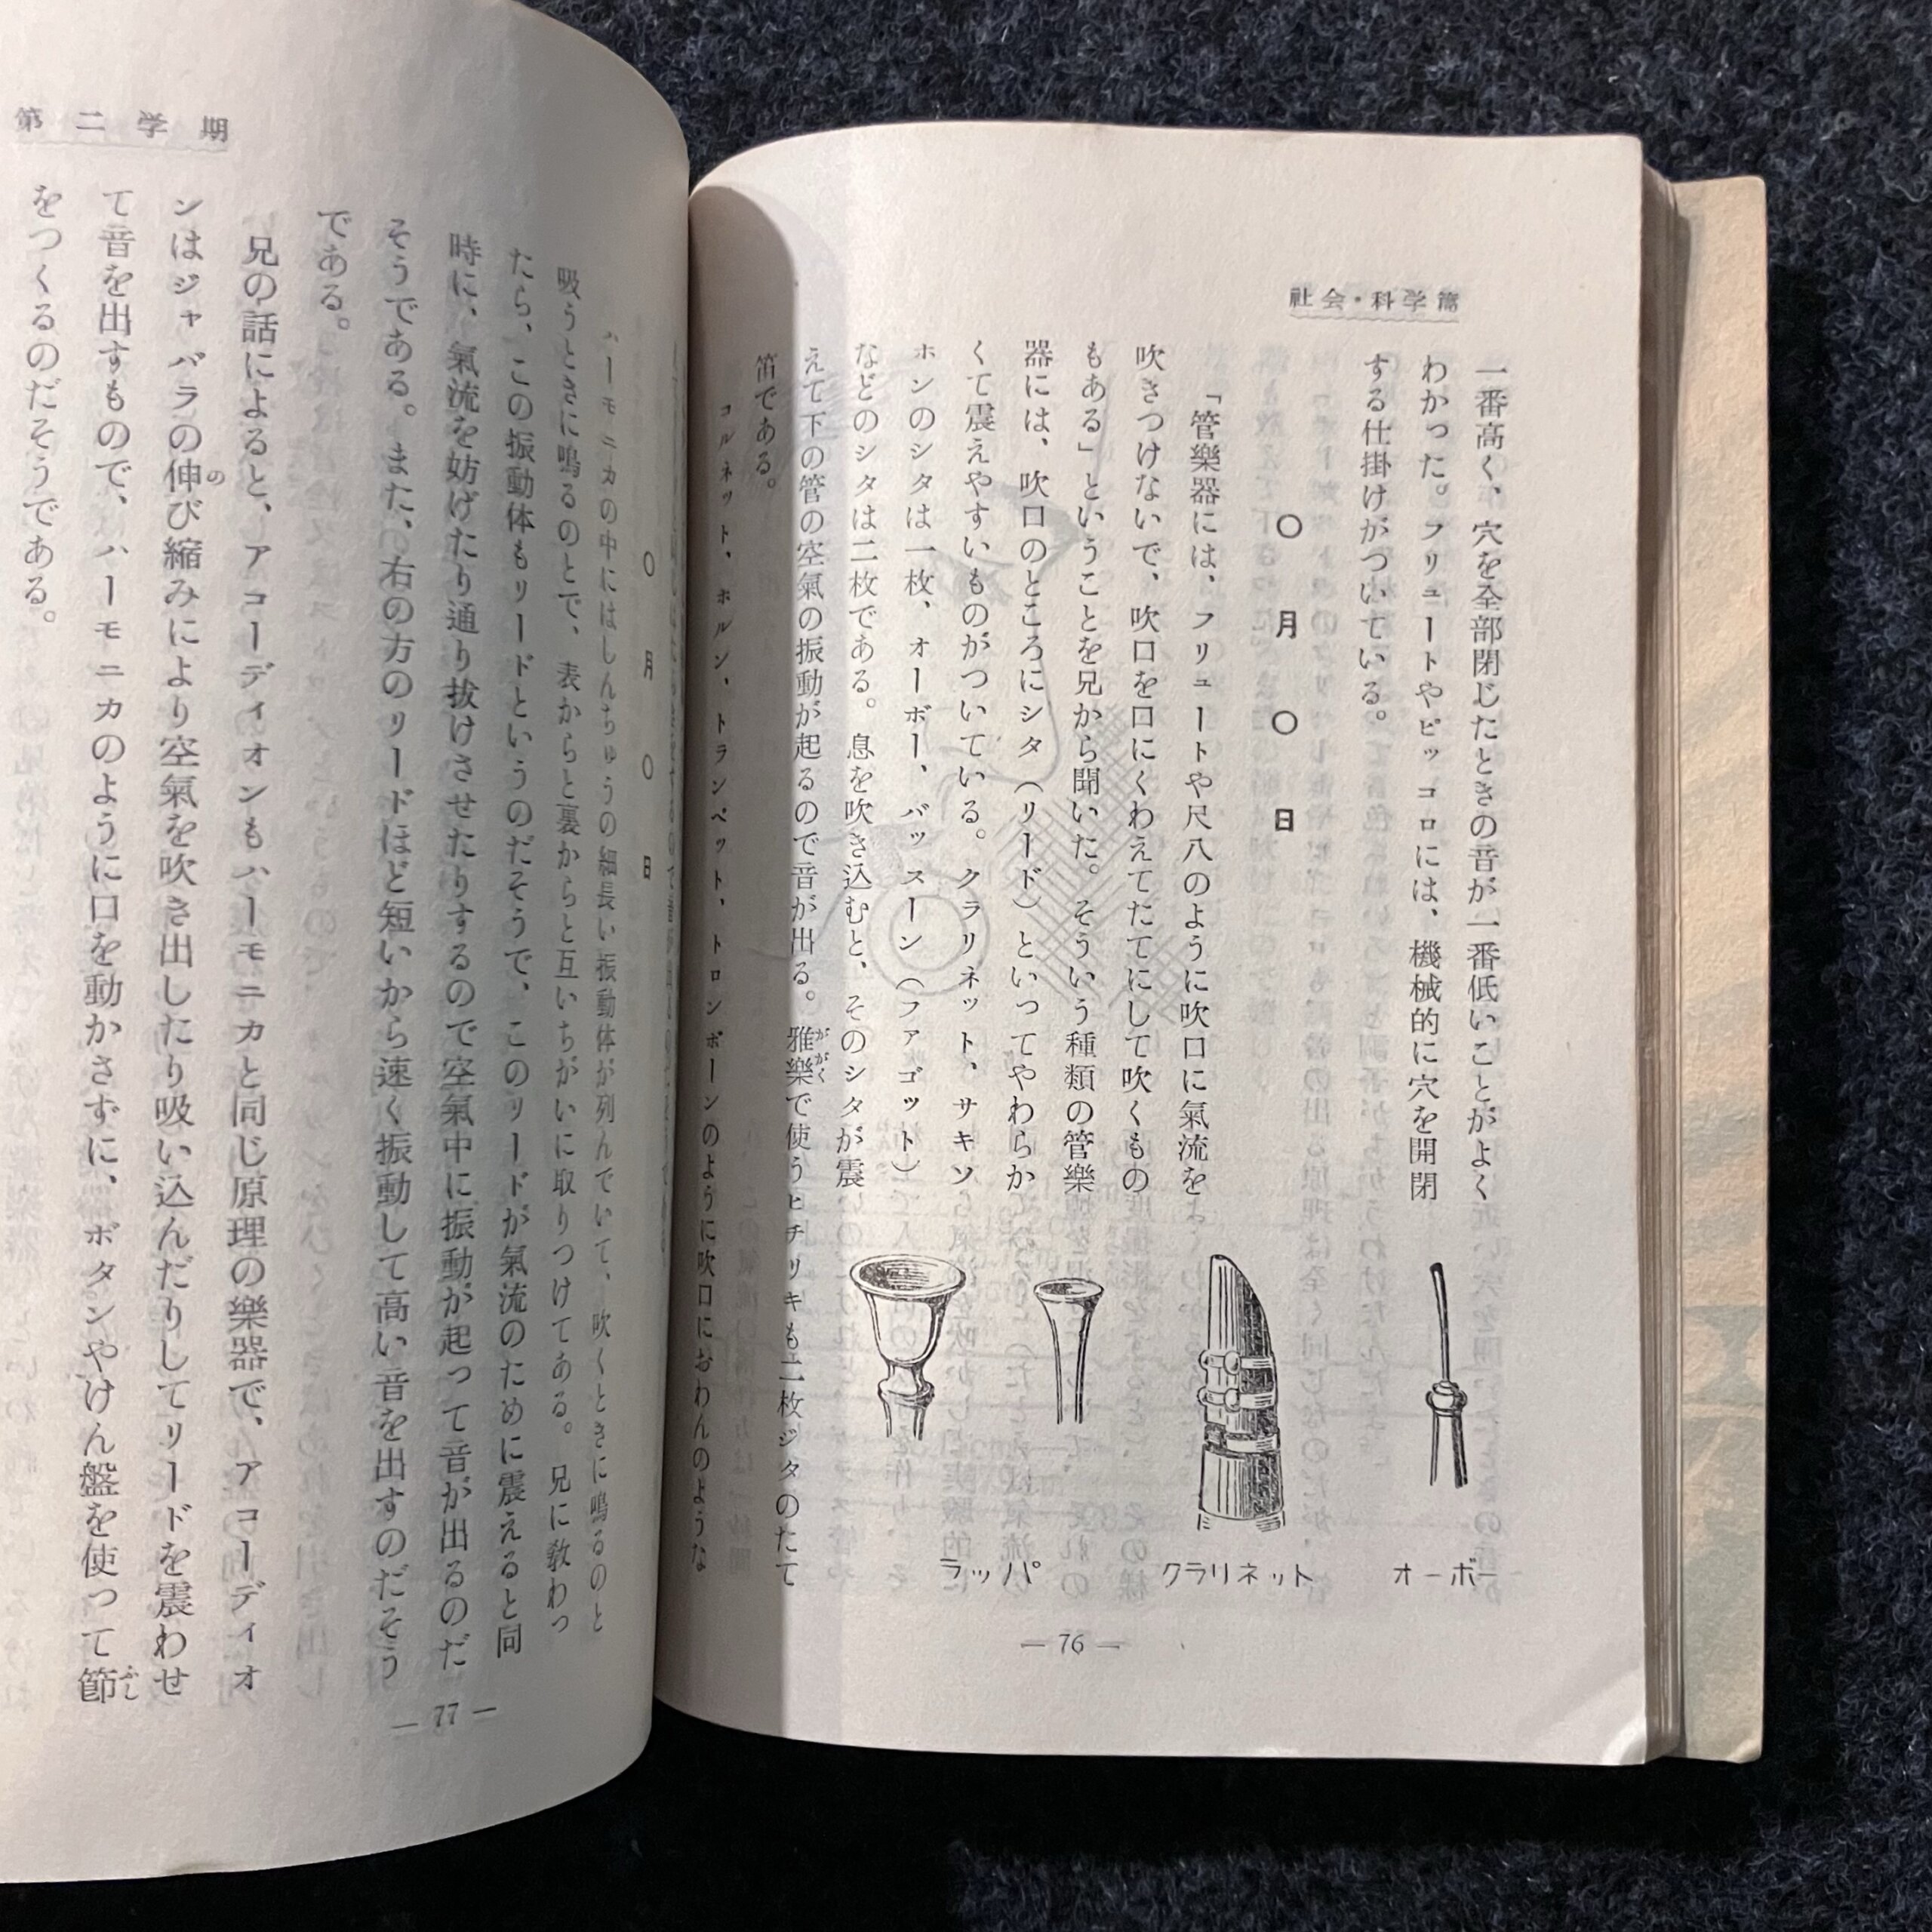 社会・科学篇
一番高く、穴を全部閉じたときの音が一番低いことがよく
わかった。フリュートやピッコロには、機械的に穴を開閉
する仕掛けがついている。
〇月〇日
「管樂器には、フリュートや尺八のように吹口に氣流を
吹きつけないで、吹口を口にくわえてたてにして吹くもの
もある」ということを兄から聞いた。そういう種類の管樂
器には、吹口のところにシタ（リード）といってやわらか
くて震えやすいものがついている。クラリネット、サキソ
ホンのシタは一枚、オーボー、バッスーン（ファゴット）
などのシタは二枚である。息を吹き込むと、そのシタが震
えて下の管の空氣の振動が起るので音が出る。雅樂で使うヒチリキも二枚ジタのたて
ががく
笛である。
コルネット、ホルン、トランペット、トロンボーンのように吹口におわんのような
オーボー
クラリネット
ラッパ
— 76 —
第二学期
〇月〇日
ハーモニカの中にはしんちゅうの細長い振動体が列んでいて、吹くときに鳴るのと
吸うときに鳴るのとで、表からと裏からと互いちがいに取りつけてある。兄に敎わっ
たら、この振動体もリードというのだそうで、このリードが氣流のために震えると同
時に、氣流を妨げたり通り抜けさせたりするので空氣中に振動が起って音が出るのだ
そうである。また、右の方のリードほど短いから速く振動して高い音を出すのだそう
である。
兄の話によると、アコーディオンもハーモニカと同じ原理の樂器で、アコーディオ
ンはジャバラの伸び縮みにより空氣を吹き出したり吸い込んだりしてリードを震わせ
の
て音を出すもので、ハーモニカのように口を動かさずに、ボタンやけん盤を使って節
ふし
をつくるのだそうである。
— 77 —